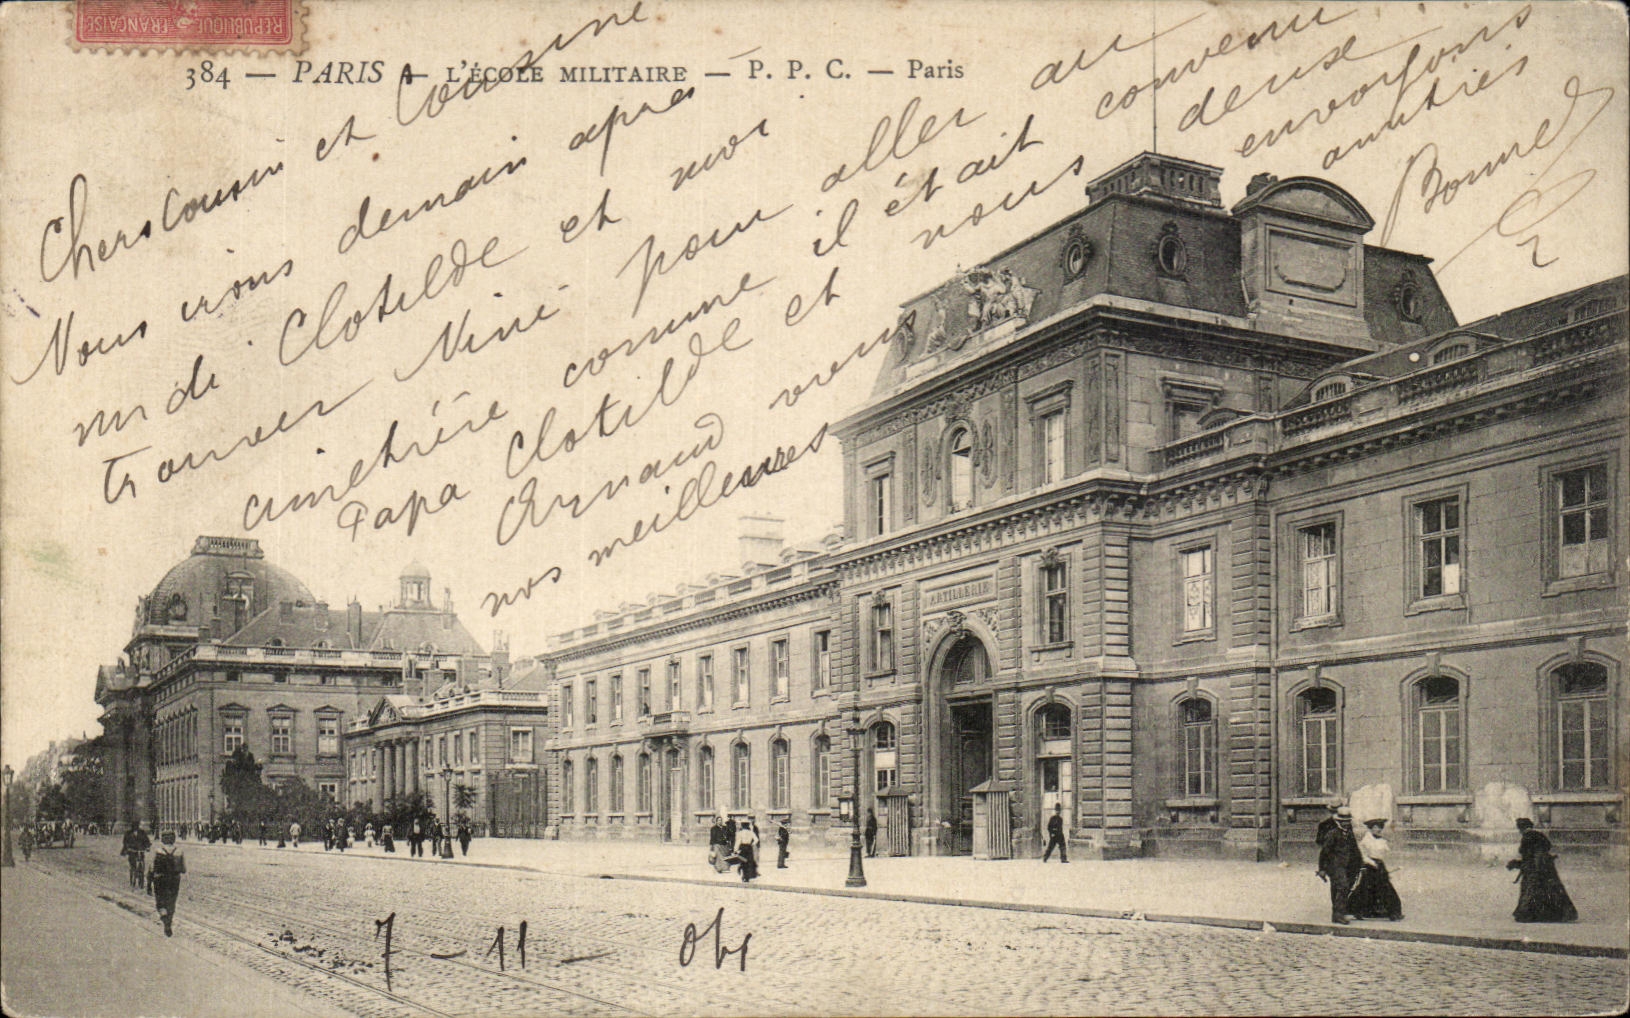 RÉPUBLIQUE FRANÇAISE
384 — PARIS — L'ÉCOLE MILITAIRE — P. P. C. — Paris
Chers Cousin et Cousine
Nous irons demain après
midi Clotilde et moi
trouver Nini pour aller au
cimetière comme il était convenu
Papa Clotilde et nous deux
Arnaud vous envoyons
nos meilleures amitiés
ARTILLERIE
7 - 11 - 04